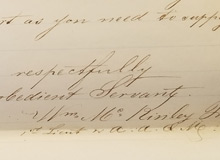 as you need to supply
respectfully
obedient Servant.
Wm. Mc. Kinley Jr
1st Lieut & A. A. Q. M.